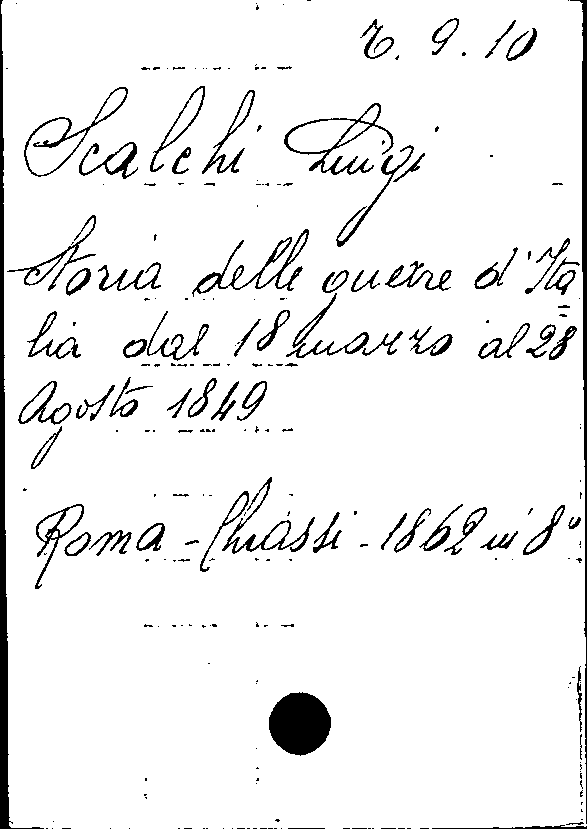 7. 9. 10
Scalchi Luigi
Storia delle guerre d'Ita=
lia dal 18 marzo al 28
Agosto 1849
Roma - Chiassi - 1862 in 8°